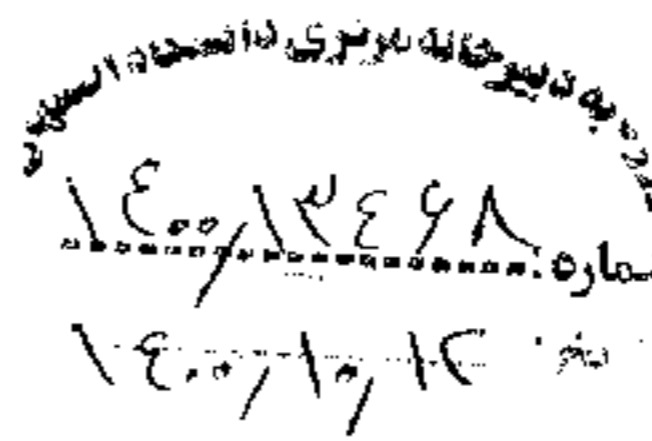 ده به دبیرخانه مرکزی دانشگاه السزهرا
شماره: ۱۴۰۰/۱۳۴۶۸
۱۴۰۰/۱۰/۱۲